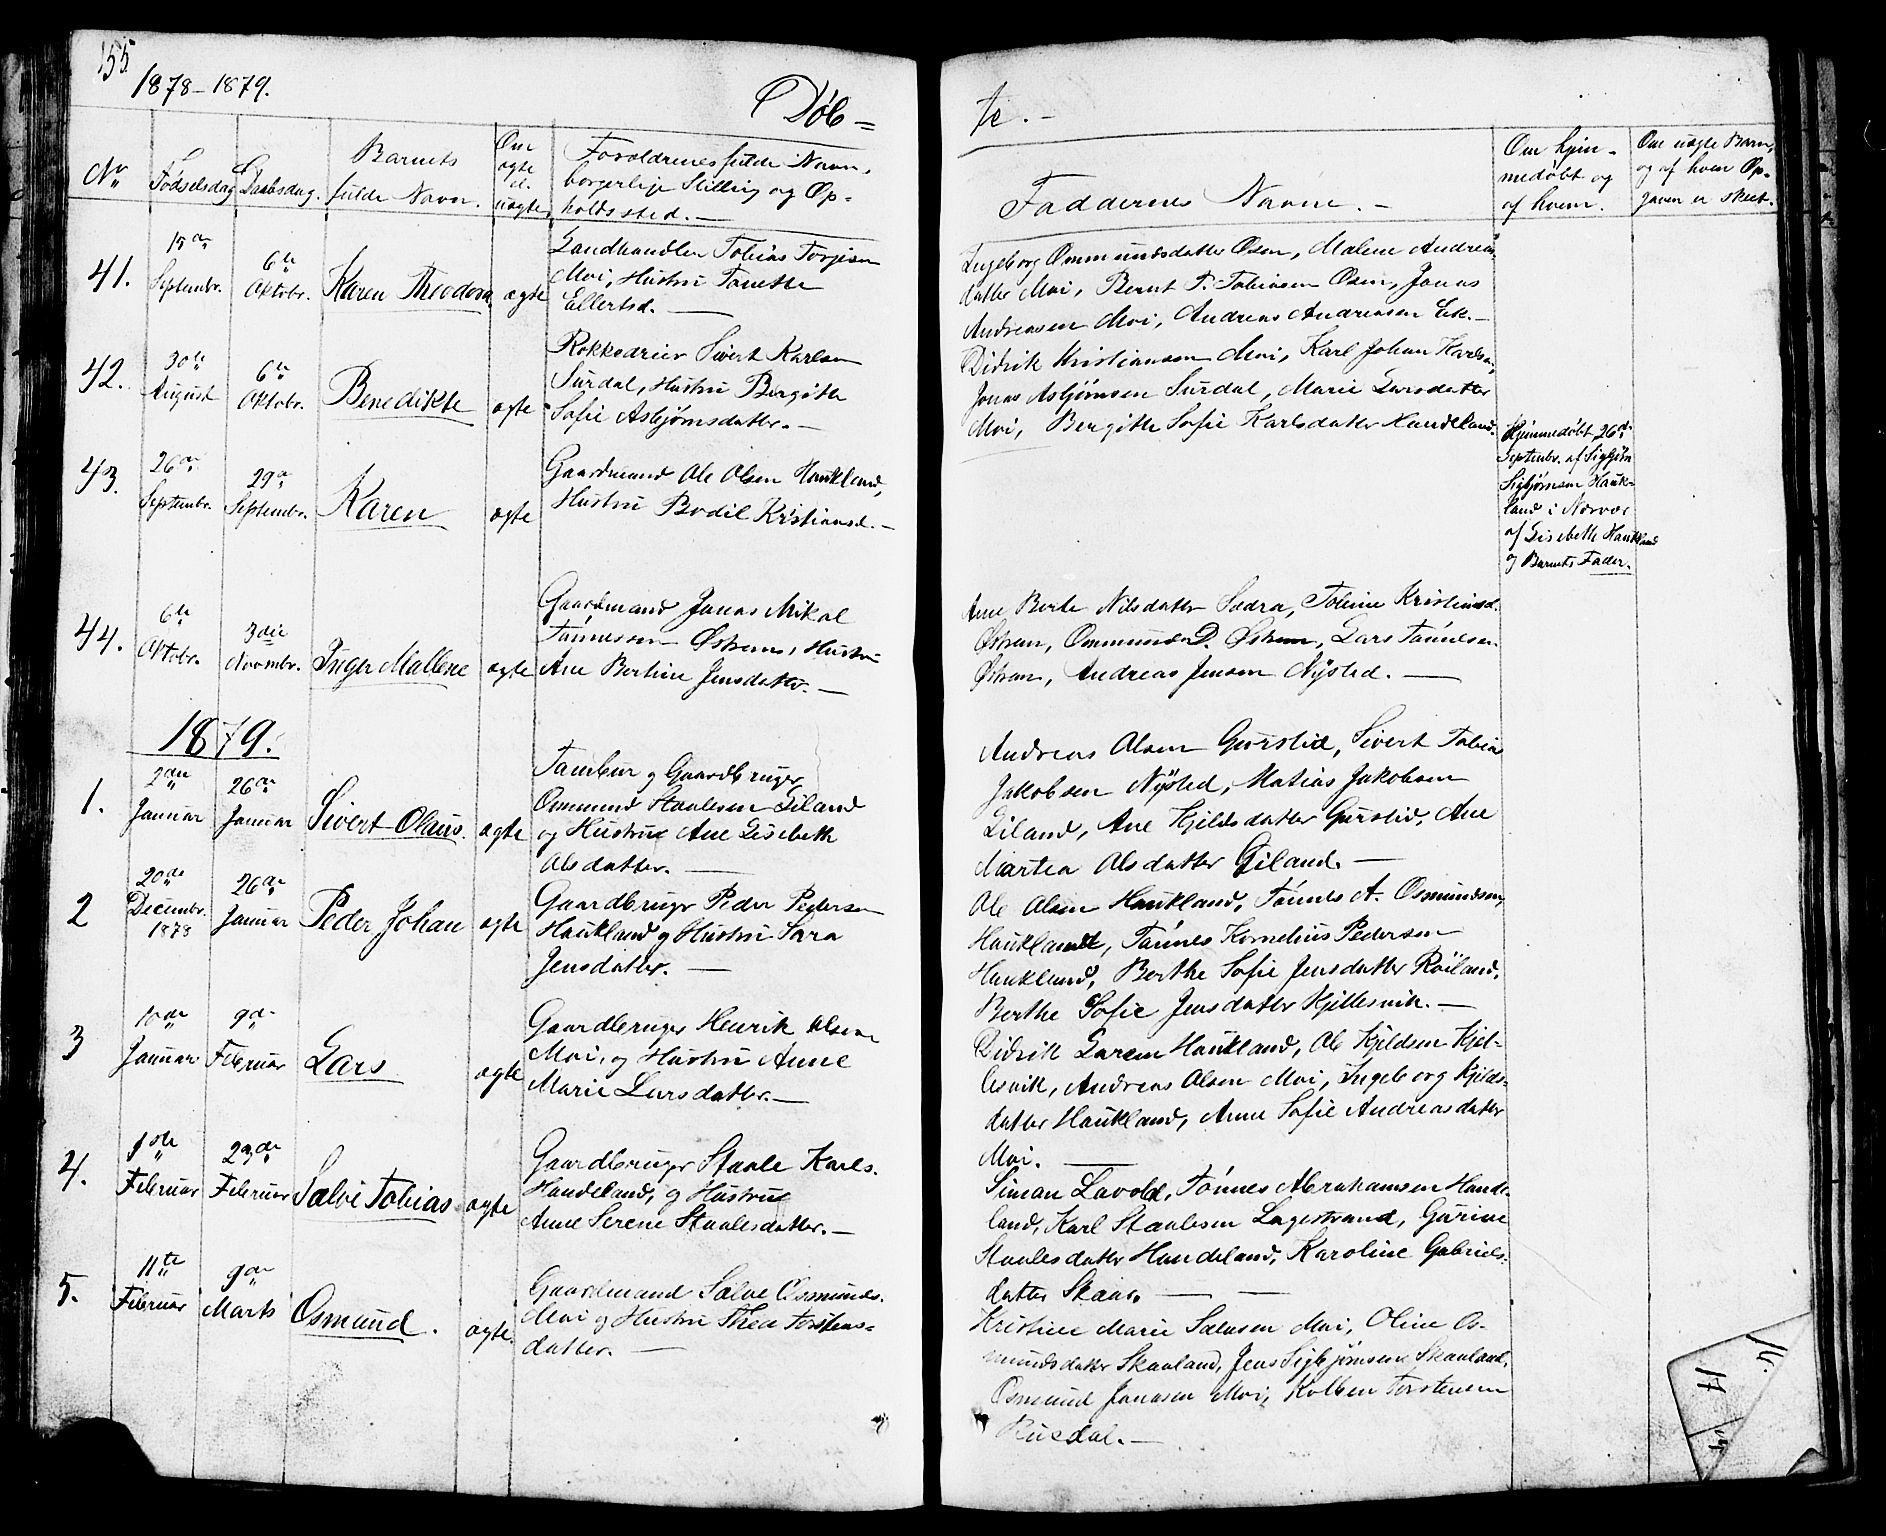 155
1878-1879.
Døb=
te.-
No
Fødselsdag
Daabsdag.
Barnets
fulde Navn.
Om
ægte
el.
uægte
Forældrenes fulde Navn,
borgerlige Stilling og Op-
holdssted.-
Faddernes Navne.-
Om hjem-
medøbt og
af hvem.
Om uægte Barn,
og af hvem Op-
gaven er skeet.
41.
15de
Septembr.
6te
Oktobr.
Karen Theodora
ægte
Landhandler Tobias Torgisen
Moi, Hustru Tonette
Ellertsd.
Ingeborg Ommundsdatter Osen, Malene Andreas-
datter Moi, Bernt T. Tobiasen Osen, Jonas
Andreasen Moi, Andreas Andreasen Eik.-
42.
30te
August
6te
Oktobr.
Benedikte
ægte
Rokkedreier Sivert Karlsen
Surdal, Hustru Bergitte
Sofie Asbjørnsdatter.-
Didrik Kristiansen Moi, Karl Johan Karlsen,
Jonas Asbjørnsen Surdal, Marie Larsdatter
Moi, Bergitte Sofie Karlsdatter Handeland.
43.
26de
Septembr.
29de
Septembr.
Karen
ægte
Gaardmand Ole Olsen Haukland,
Hustru Bodil Kristiansd.-
Hjemmedøbt 26de
Septembr. af Sigbjørn
Sigbjørnsen Hauk-
land i Nærvær
af Lisebeth Haukland
og Barnets Fader.
44.
6te
Oktobr.
3die
Novembr.
Inger Mallene
ægte
Gaardmand Jonas Mikal
Tønnessen Østrem, Hustru
Ane Bertine Jensdatter.-
Ane Berte Nilsdatter, Toline Kristiansd.
Østrem, Ommund D. Østrem, Lars Tønnesen
Østrem, Andreas Jensen Nysted.
1879.
1.
2den
Januar
26de
Januar
Sivert Olaus.
ægte
Tambur og Gaardbruger
Osmund Staalesen Eiland
og Hustru Ane Lisebeth
Olsdatter.
Andreas Olsen Gurstid, Sivert Tobias
Jakobsen Nysted, Matias Jakobsen
Eiland, Ane Kjeldsdatter Gurstid, Ane
Martea Olsdatter Eiland.
2
20de
Decembr.
1878
26de
Januar
Peder Johan
ægte
Gaardbruger Peder Pedersen
Haukland og Hustru Sara
Jensdatter.
Ole Olsen Haukland, Tønnes A. Osmundsen,
Haukland, Tønnes Kornelius Pedersen
Haukland, Berthe Sofie Jensdatter Røiland,
Berthe Sofie Jensdatter Kjellesvik.-
3
10de
Januar
9de
Februar
Lars
ægte
Gaardbruger Henrik Olsen
Moi, og Hustru Anne
Marie Larsdatter.-
Didrik Larsen Haukland, Ole Kjeldsen Kjel-
lesvik, Andreas Olsen Moi, Ingeborg Kjelds-
datter Haukland, Anne Sofie Andreasdatter
Moi.
4.
1ste
Februar
23de
Februar
Salve Tobias
ægte
Gaardbruger Staale Karls.
Handeland, og Hustru
Anne Serene Staalesdatter.-
Simon Lavold, Tønnes Abrahamsen Hande-
land, Karl Staalesen Lagestrand, Gurine
Staalesdatter Handeland, Karoline Gabriels-
datter Skaar.
5.
11te
Februar
9de
Marts
Osmund.
ægte.
Gaardmand Salve Osmunds.
Moi og Hustru Thea Torstens-
datter.
Kristine Marie Salvesen Moi, Oline Os-
mundsdatter Skaaland, Jens Sigbjørnsen Skaaland,
Osmund Jonasen Moi, Kolben Torstensen
Rusdal.-